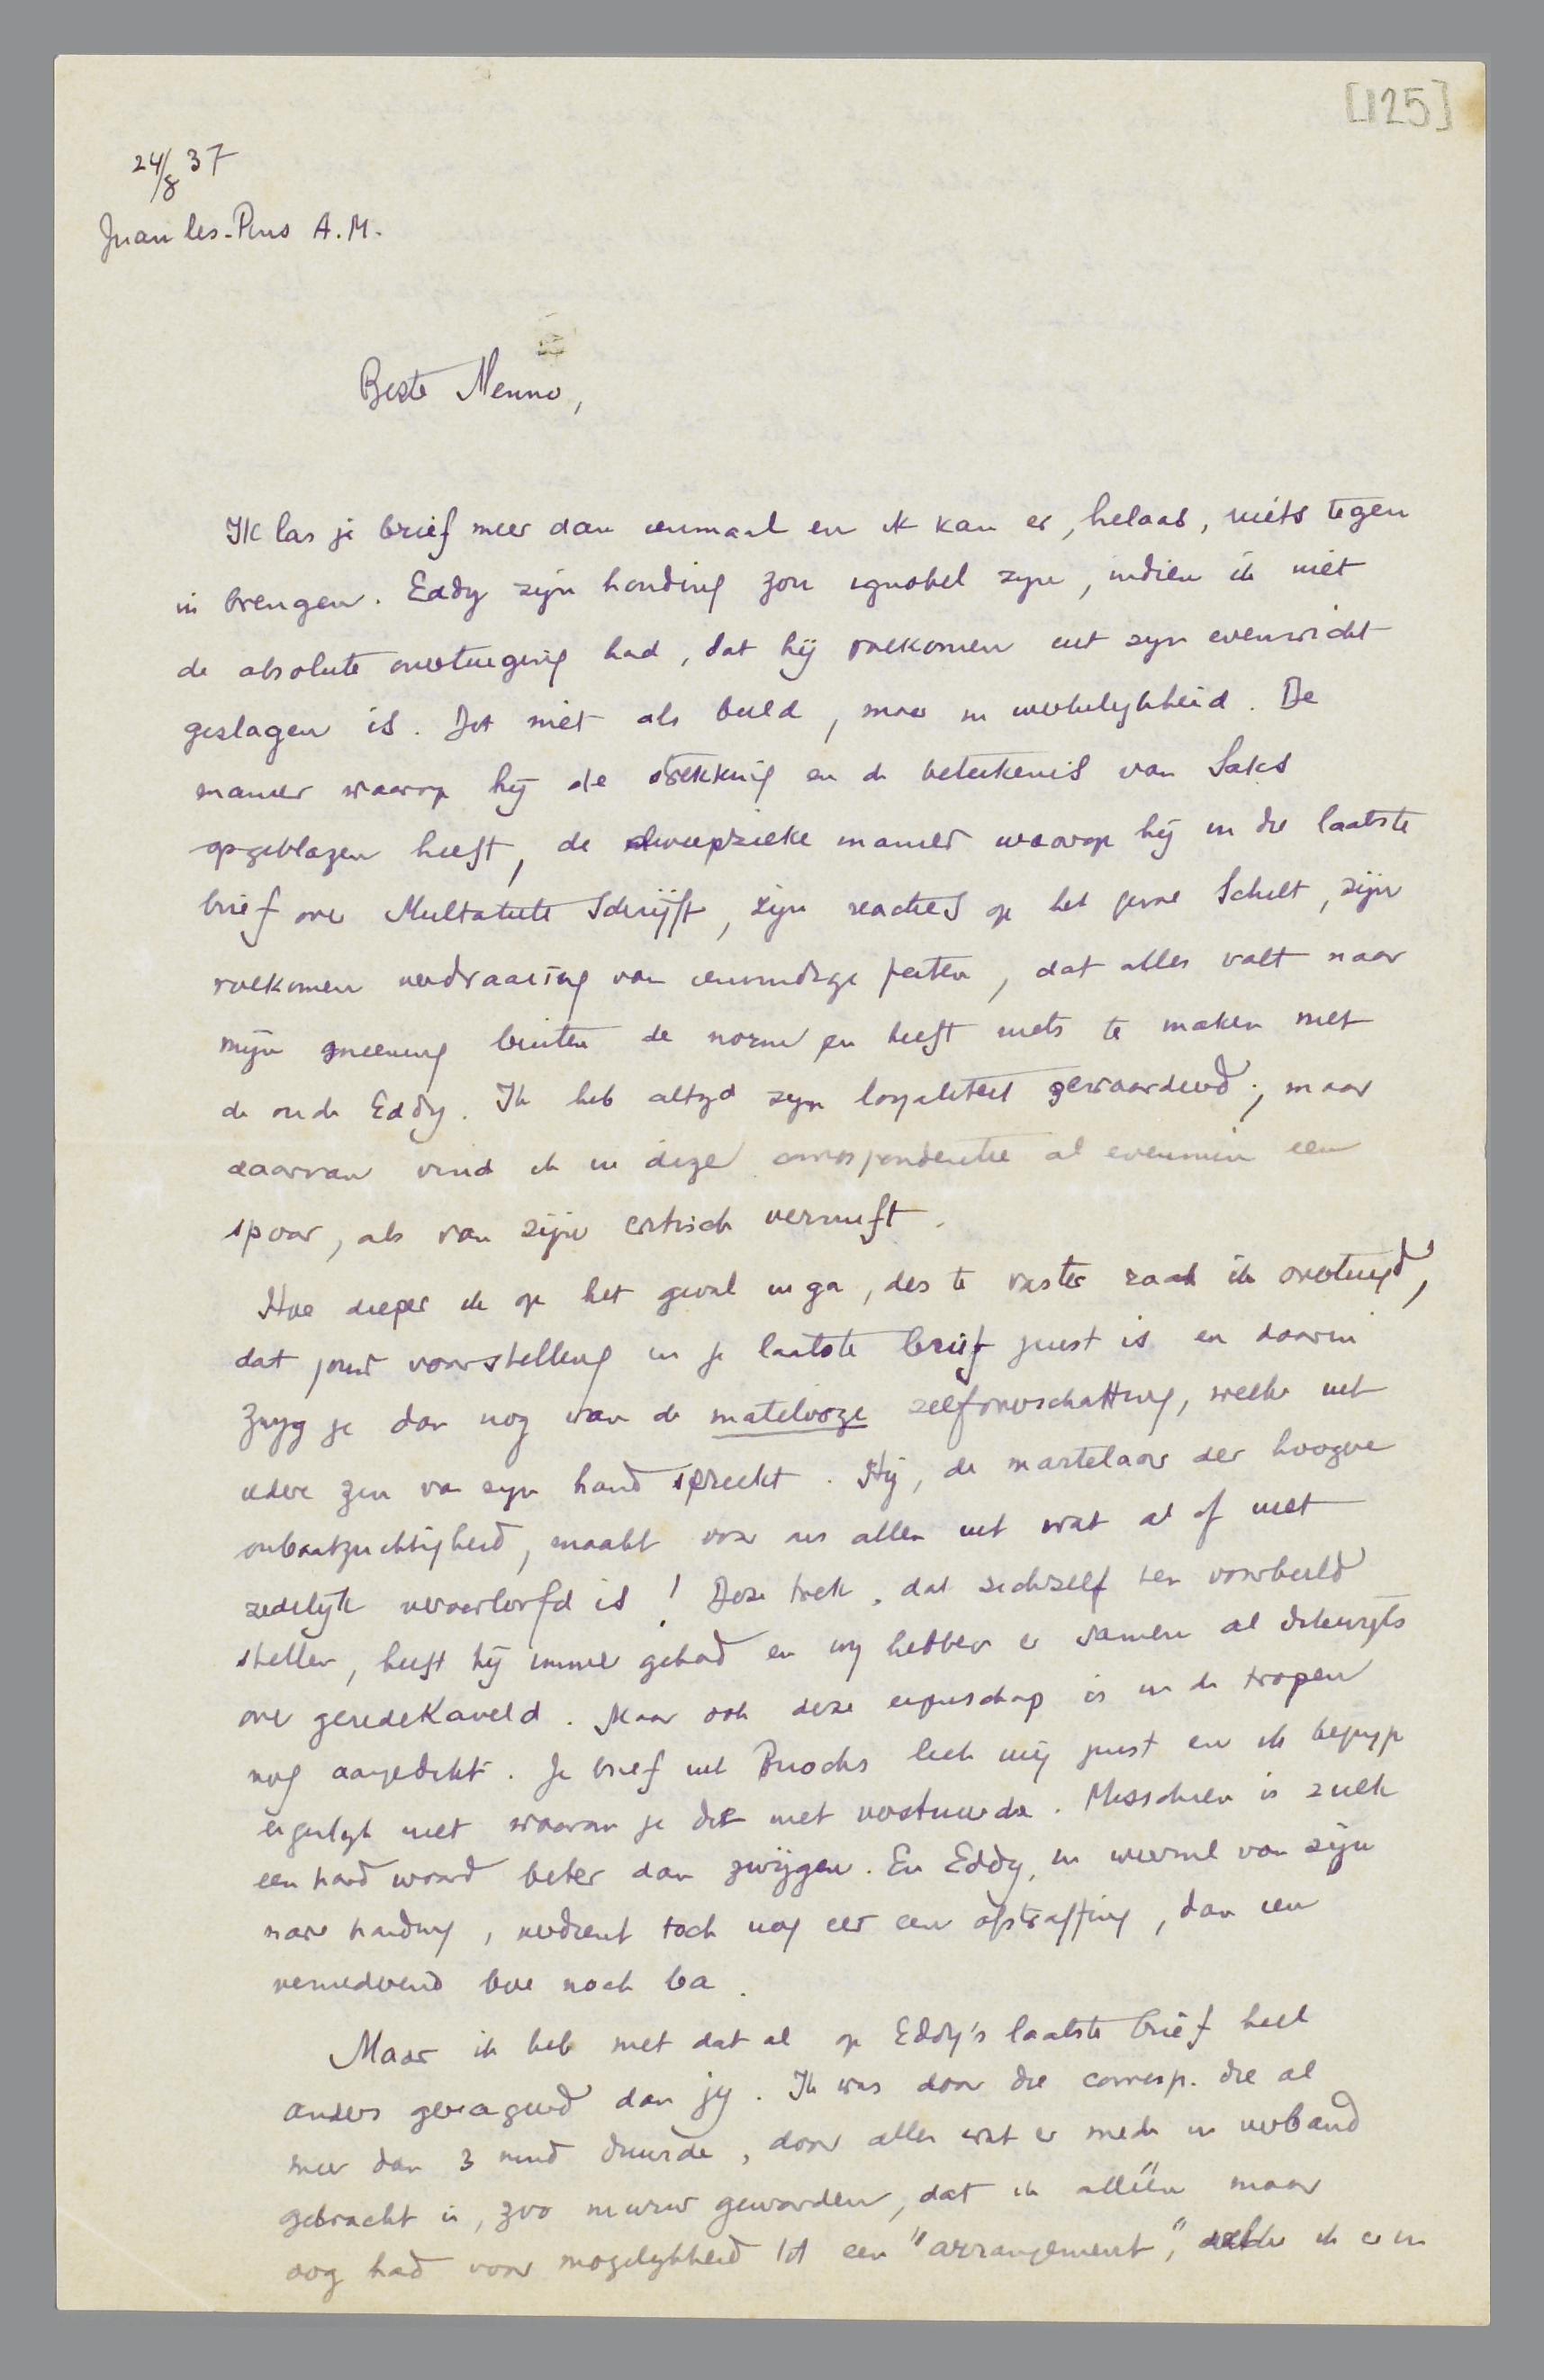 [125]
24/8 37
Juan les-Pins A.M.
Beste Menno,
Ik las je brief meer dan eenmaal en ik kan er, helaas, niets tegen
in brengen. Eddy zijn houding zou ignobel zijn, indien ik niet
de absolute overtuiging had, dat hij volkomen uit zijn evenwicht
geslagen is. Dit niet als beeld, maar in werkelijkheid. De
manier waarop hij de strekking en de beteekenis van Saks
opgeblazen heeft, de dweepzieke manier waarop hij in die laatste
brief over Multatuli schrijft, zijn reacties op het geval Schilt, zijn
volkomen verdraaiing van eenvoudige feiten, dat alles valt naar
mijn meening buiten de norm en heeft niets te maken met
de oude Eddy. Ik heb altijd zijn loyaliteit gewaardeerd; maar
daarvan vind ik in deze correspondentie al evenmin een
spoor, als van zijn critisch vernuft.
Hoe dieper ik op het geval inga, des te vaster raak ik overtuigd,
dat jouw voorstelling in je laatste brief juist is en daarin
zwijg je dan nog van de matelooze zelfoverschatting, welke uit
iedere zin van zijn hand spreekt. Hij, de martelaar der hoogere
onbaatzuchtigheid, maakt voor ons allen uit wat al of niet
zedelijk veroorloofd is! Deze trek, dat zichzelf ten voorbeeld
stellen, heeft hij immer gehad en wij hebben er samen al dikwijls
over geredekaveld. Maar ook deze eigenschap is in de tropen
nog aangedikt. Je brief uit Burochs leek mij juist en ik begrijp
eigenlijk niet waarom je die niet verstuurde. Misschien is zulk
een hard woord beter dan zwijgen. En Eddy, in weerwil van zijn
nare houding, verdient toch nog eer een afstraffing, dan een
vernederend boe noch ba.
Maar ik heb met dat al op Eddy's laatste brief heel
anders gereageerd dan jij. Ik was door die corresp. die al
meer dan 3 mnd duurde, door alles wat er mede in verband
gebracht is, zoo murw geworden, dat ik alléén maar
oog had voor mogelijkheid tot een "arrangement", welke ik er in